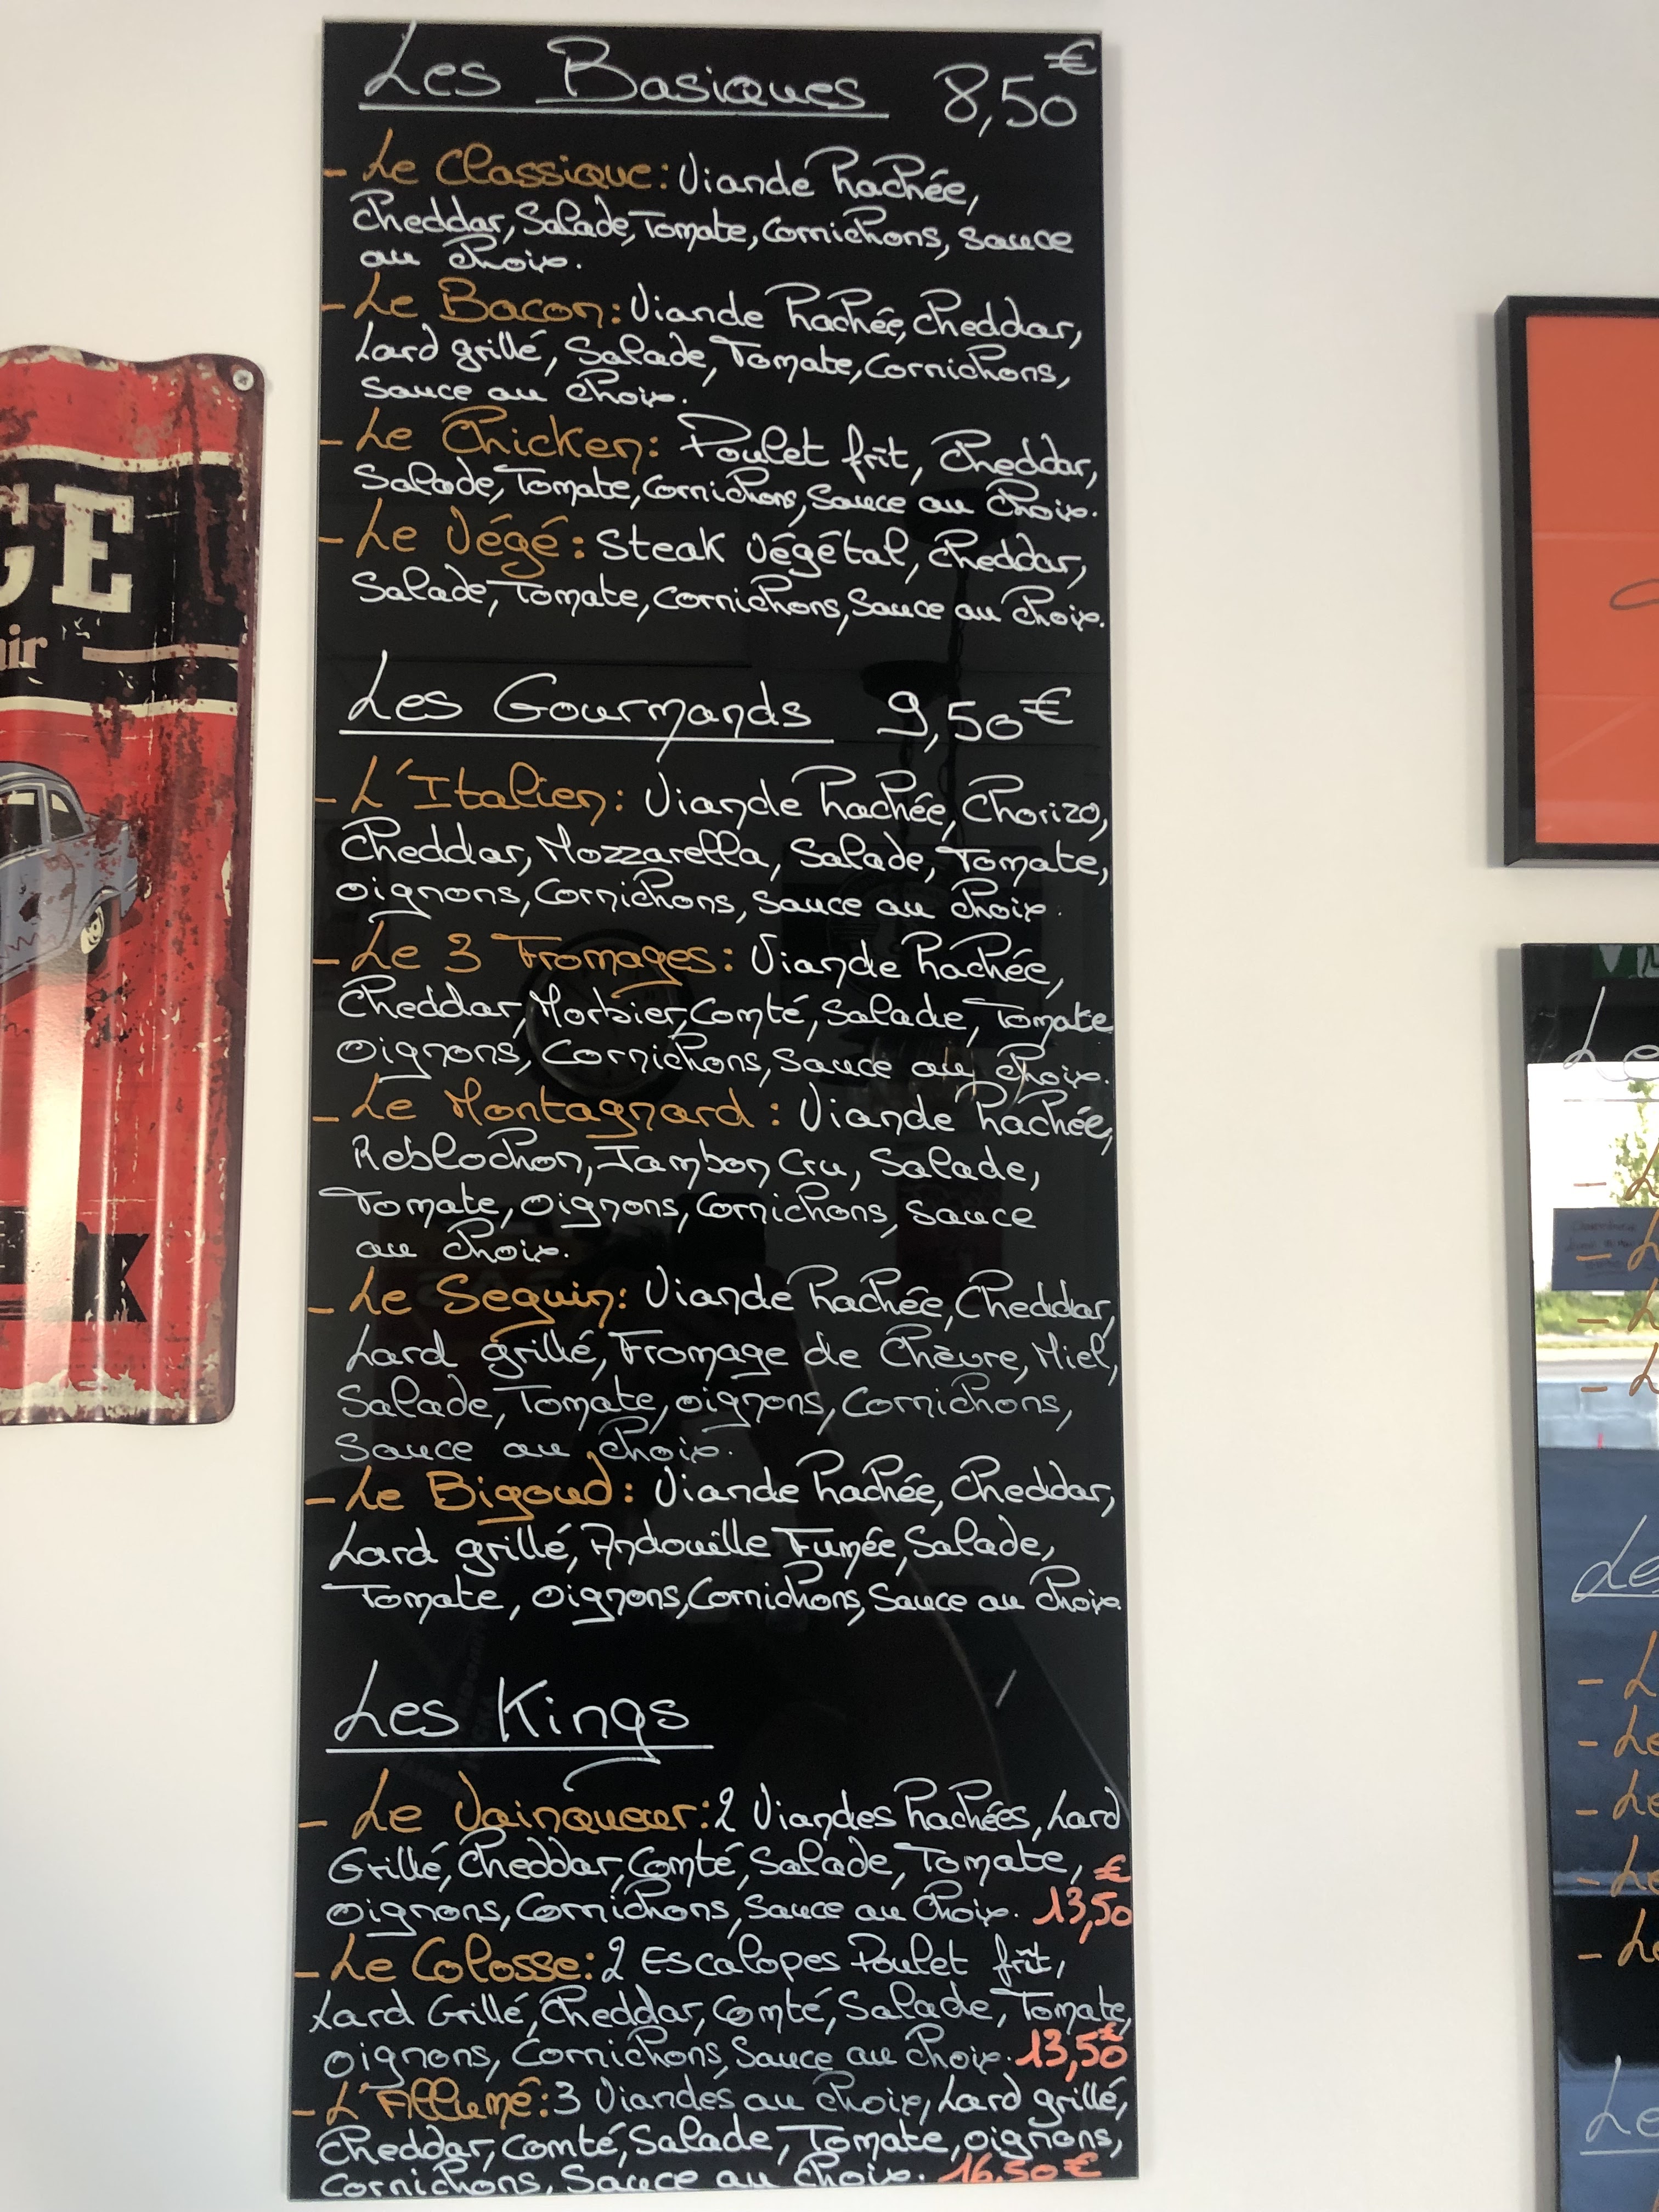 Les Basiques 8,50€
- Le Classique: Viande hachée,
Cheddar, Salade, Tomate, Cornichons, Sauce
au choix.
- Le Bacon: Viande hachée, Cheddar,
Lard grillé, Salade, Tomate, Cornichons,
Sauce au choix.
- Le Chicken: Poulet frit, Cheddar,
Salade, Tomate, Cornichons, Sauce au choix.
- Le Végé: Steak végétal, Cheddar,
Salade, Tomate, Cornichons, Sauce au choix.
Les Gourmands 9,50€
- L'Italien: Viande hachée, Chorizo,
Cheddar, Mozzarella, Salade, Tomate,
oignons, Cornichons, Sauce au choix.
- Le 3 Fromages: Viande hachée,
Cheddar, Morbier, Comté, Salade, Tomate
Oignons, Cornichons, Sauce au choix.
- Le Montagnard: Viande hachée,
Reblochon, Jambon Cru, Salade,
Tomate, oignons, Cornichons, Sauce
au choix.
- Le Seguin: Viande hachée, Cheddar,
Lard grillé, Fromage de Chèvre, Miel,
Salade, Tomate, oignons, Cornichons,
Sauce au choix.
- Le Bigoud: Viande hachée, Cheddar,
Lard grillé, Andouille Fumée, Salade,
Tomate, Oignons, Cornichons, Sauce au choix.
Les Kings
- Le Vainqueur: 2 Viandes hachées, Lard
Grillé, Cheddar, Comté, Salade, Tomate,
oignons, Cornichons, Sauce au Choix. 13,50€
- Le Colosse: 2 Escalopes Poulet frît,
Lard Grillé, Cheddar, Comté, Salade, Tomate,
oignons, Cornichons, Sauce au choix. 13,50€
- L'Allumé: 3 Viandes au choix, Lard grillé,
Cheddar, Comté, Salade, Tomate, oignons,
Cornichons, Sauce au choix. 16,50€